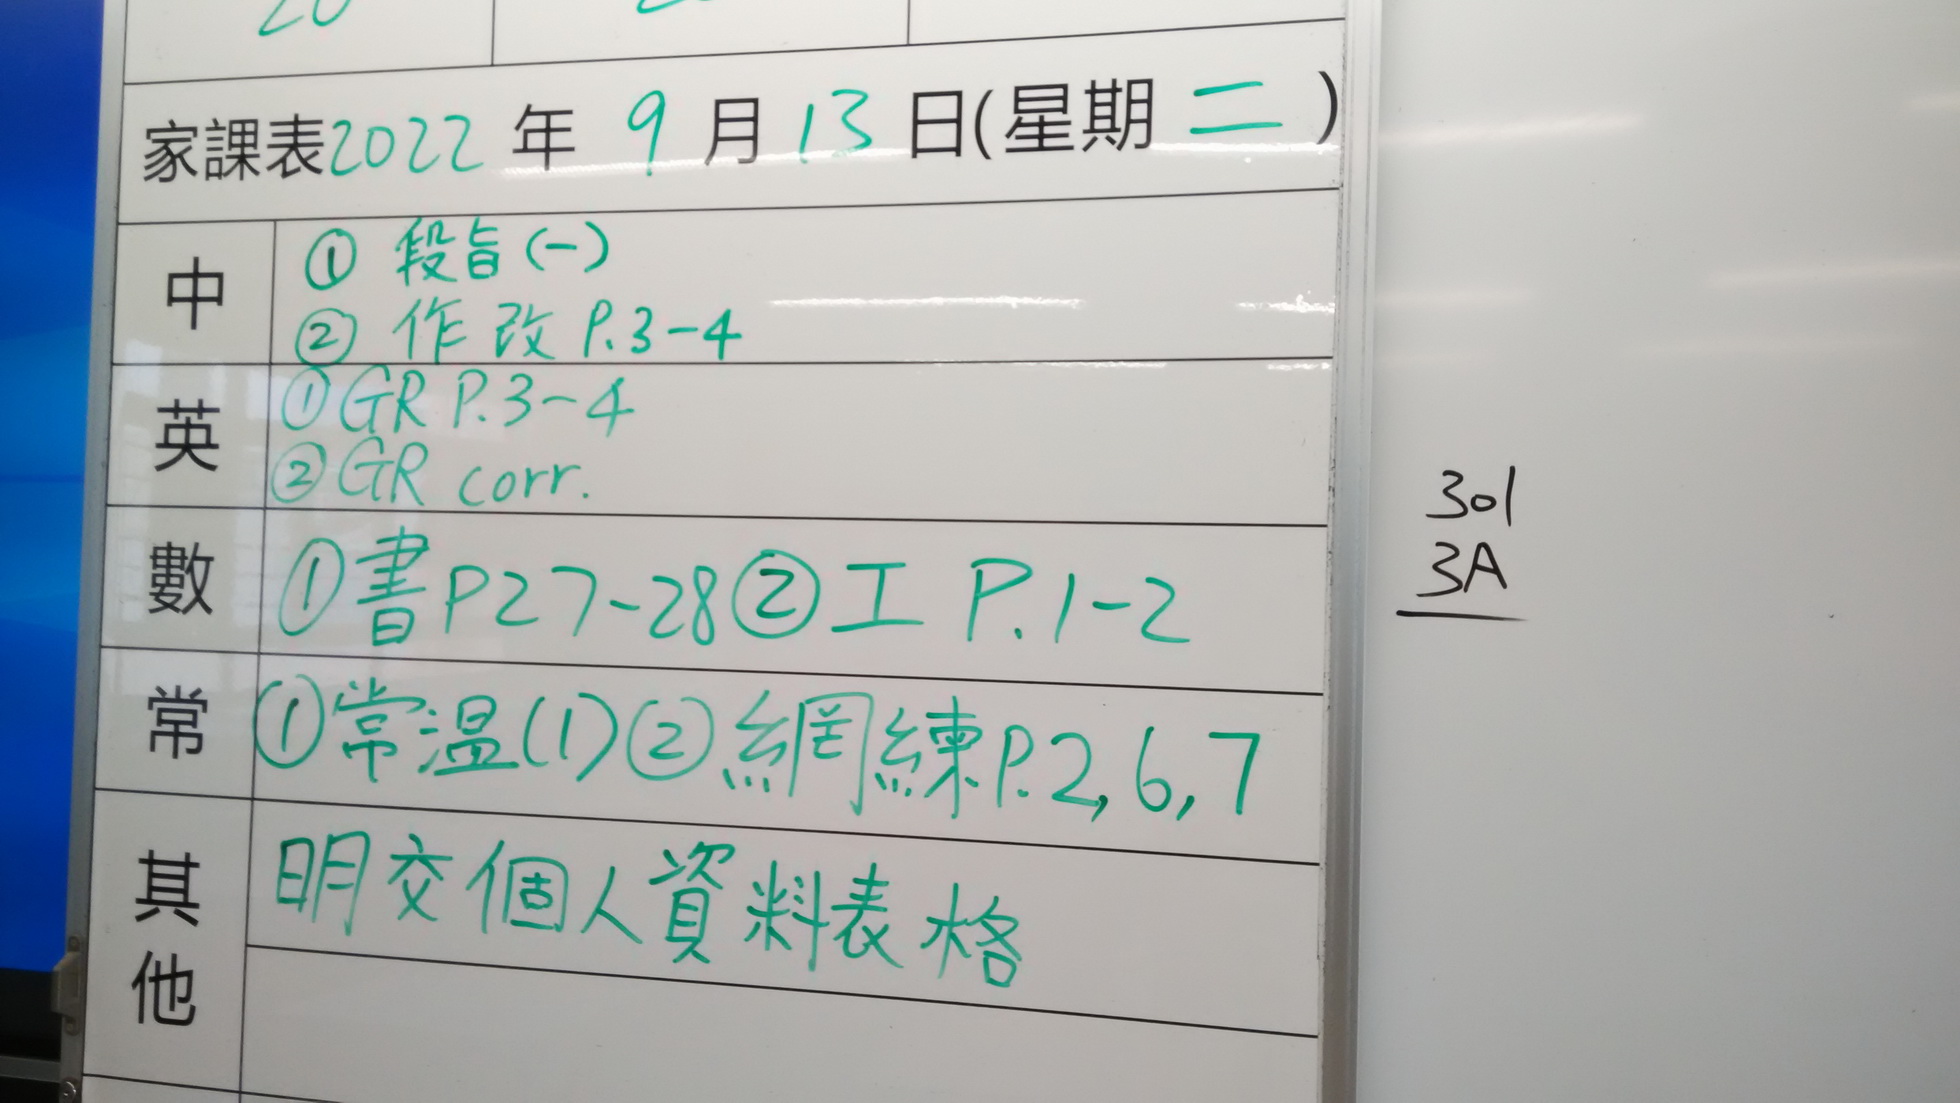 家課表2022年9月13日(星期二)
中
① 段旨(一)
② 作改 P.3-4
英
① GR P.3-4
② GR corr.
數
①書P27-28②工 P.1-2
常
①常溫(1)②網練P.2,6,7
其他
明交個人資料表格
301
3A